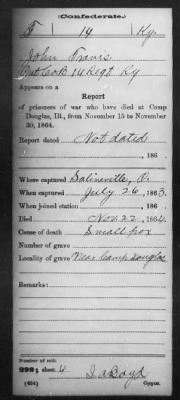 Confederate.
T 14 Ky.
John Travis
Pvt Co B 14 Regt Ky
Appears on a
Report
of prisoners of war who have died at Camp
Douglas, Ill., from November 15 to November
30, 1864.
Report dated Not dated
, 186 .
Where captured Salineville, O.
When captured July 26, 1863.
When joined station , 186 .
Died Nov 22, 1864.
Cause of death Small pox
Number of grave
Locality of grave Near Camp Douglas
Remarks:
Number of roll:
299; sheet 4
(464) Copyist.